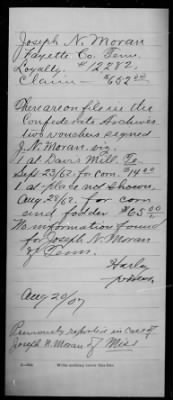 Joseph N. Moran
Fayette Co. Tenn.
Loyalty. #12282.
Claim — $652.00
There are on file in the
Confederate Archives
two vouchers signed
J. N. Moran, viz.
1 at Davis Mill,
Sept 23/62, for corn. $14.00
1 at place not shown,
Aug 28/62. for corn
and fodder $65.00
No information found
for Joseph N. Moran
of Tenn.
Aug 20/07
Previously reported in case of
Joseph N. Moran of Miss